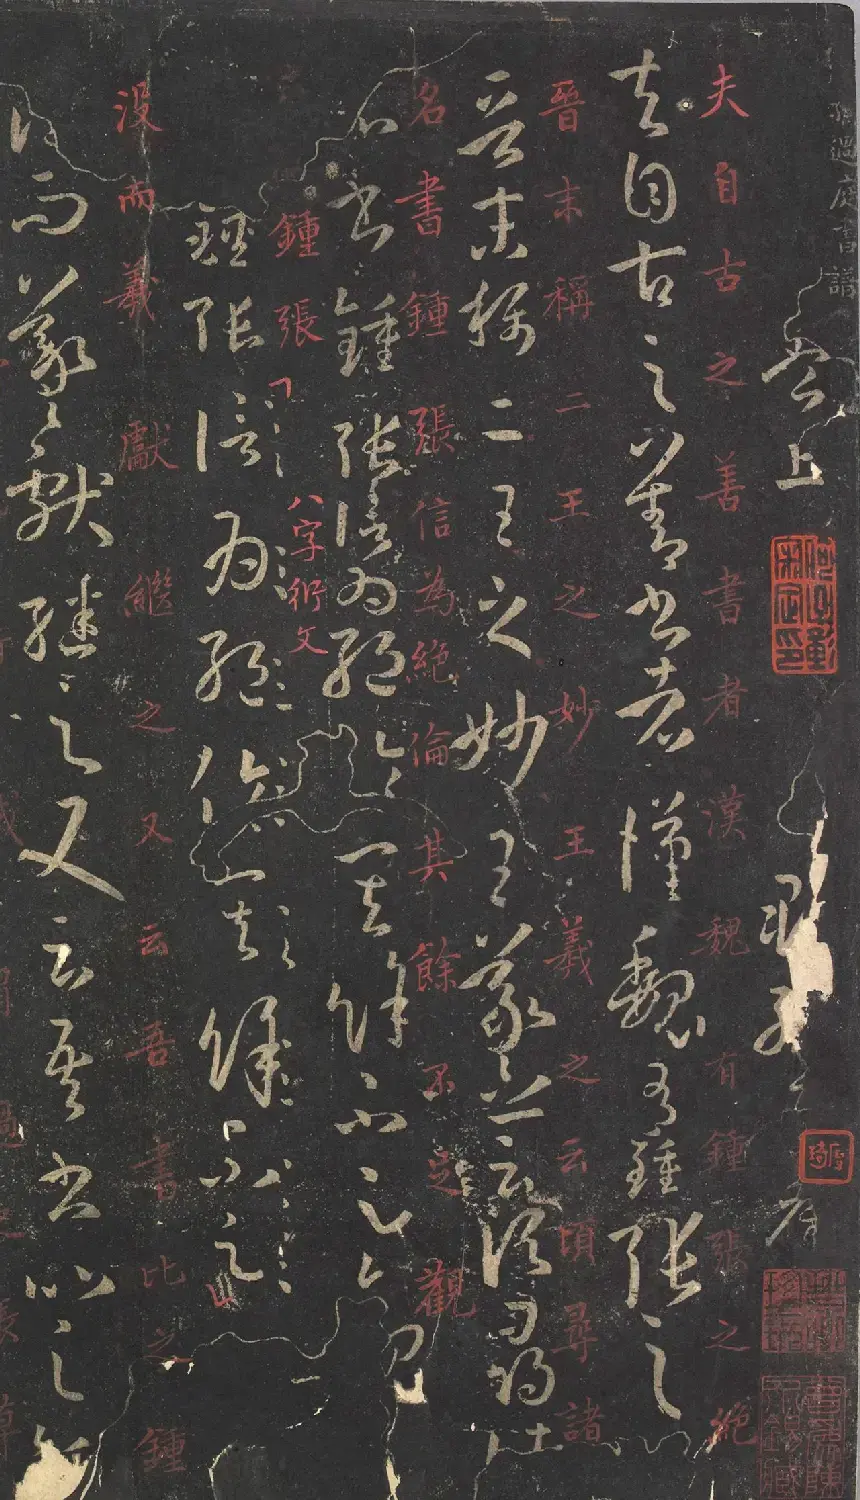 過庭書譜
卷上
夫自古之善書者漢魏有鍾張之絕
夫自古之善書者漢魏有鍾張之
晉末稱二王之妙王羲之云頃尋諸
晉末稱二王之妙王羲之云頃尋諸
名書鍾張信為絕倫其餘不足觀
名書鍾張信為絕倫其餘不足觀
鍾張
八字衍文
鍾張信為絕倫其餘不足
沒而羲獻繼之又云吾書比之鍾
沒而羲獻繼之又云吾書比之鍾